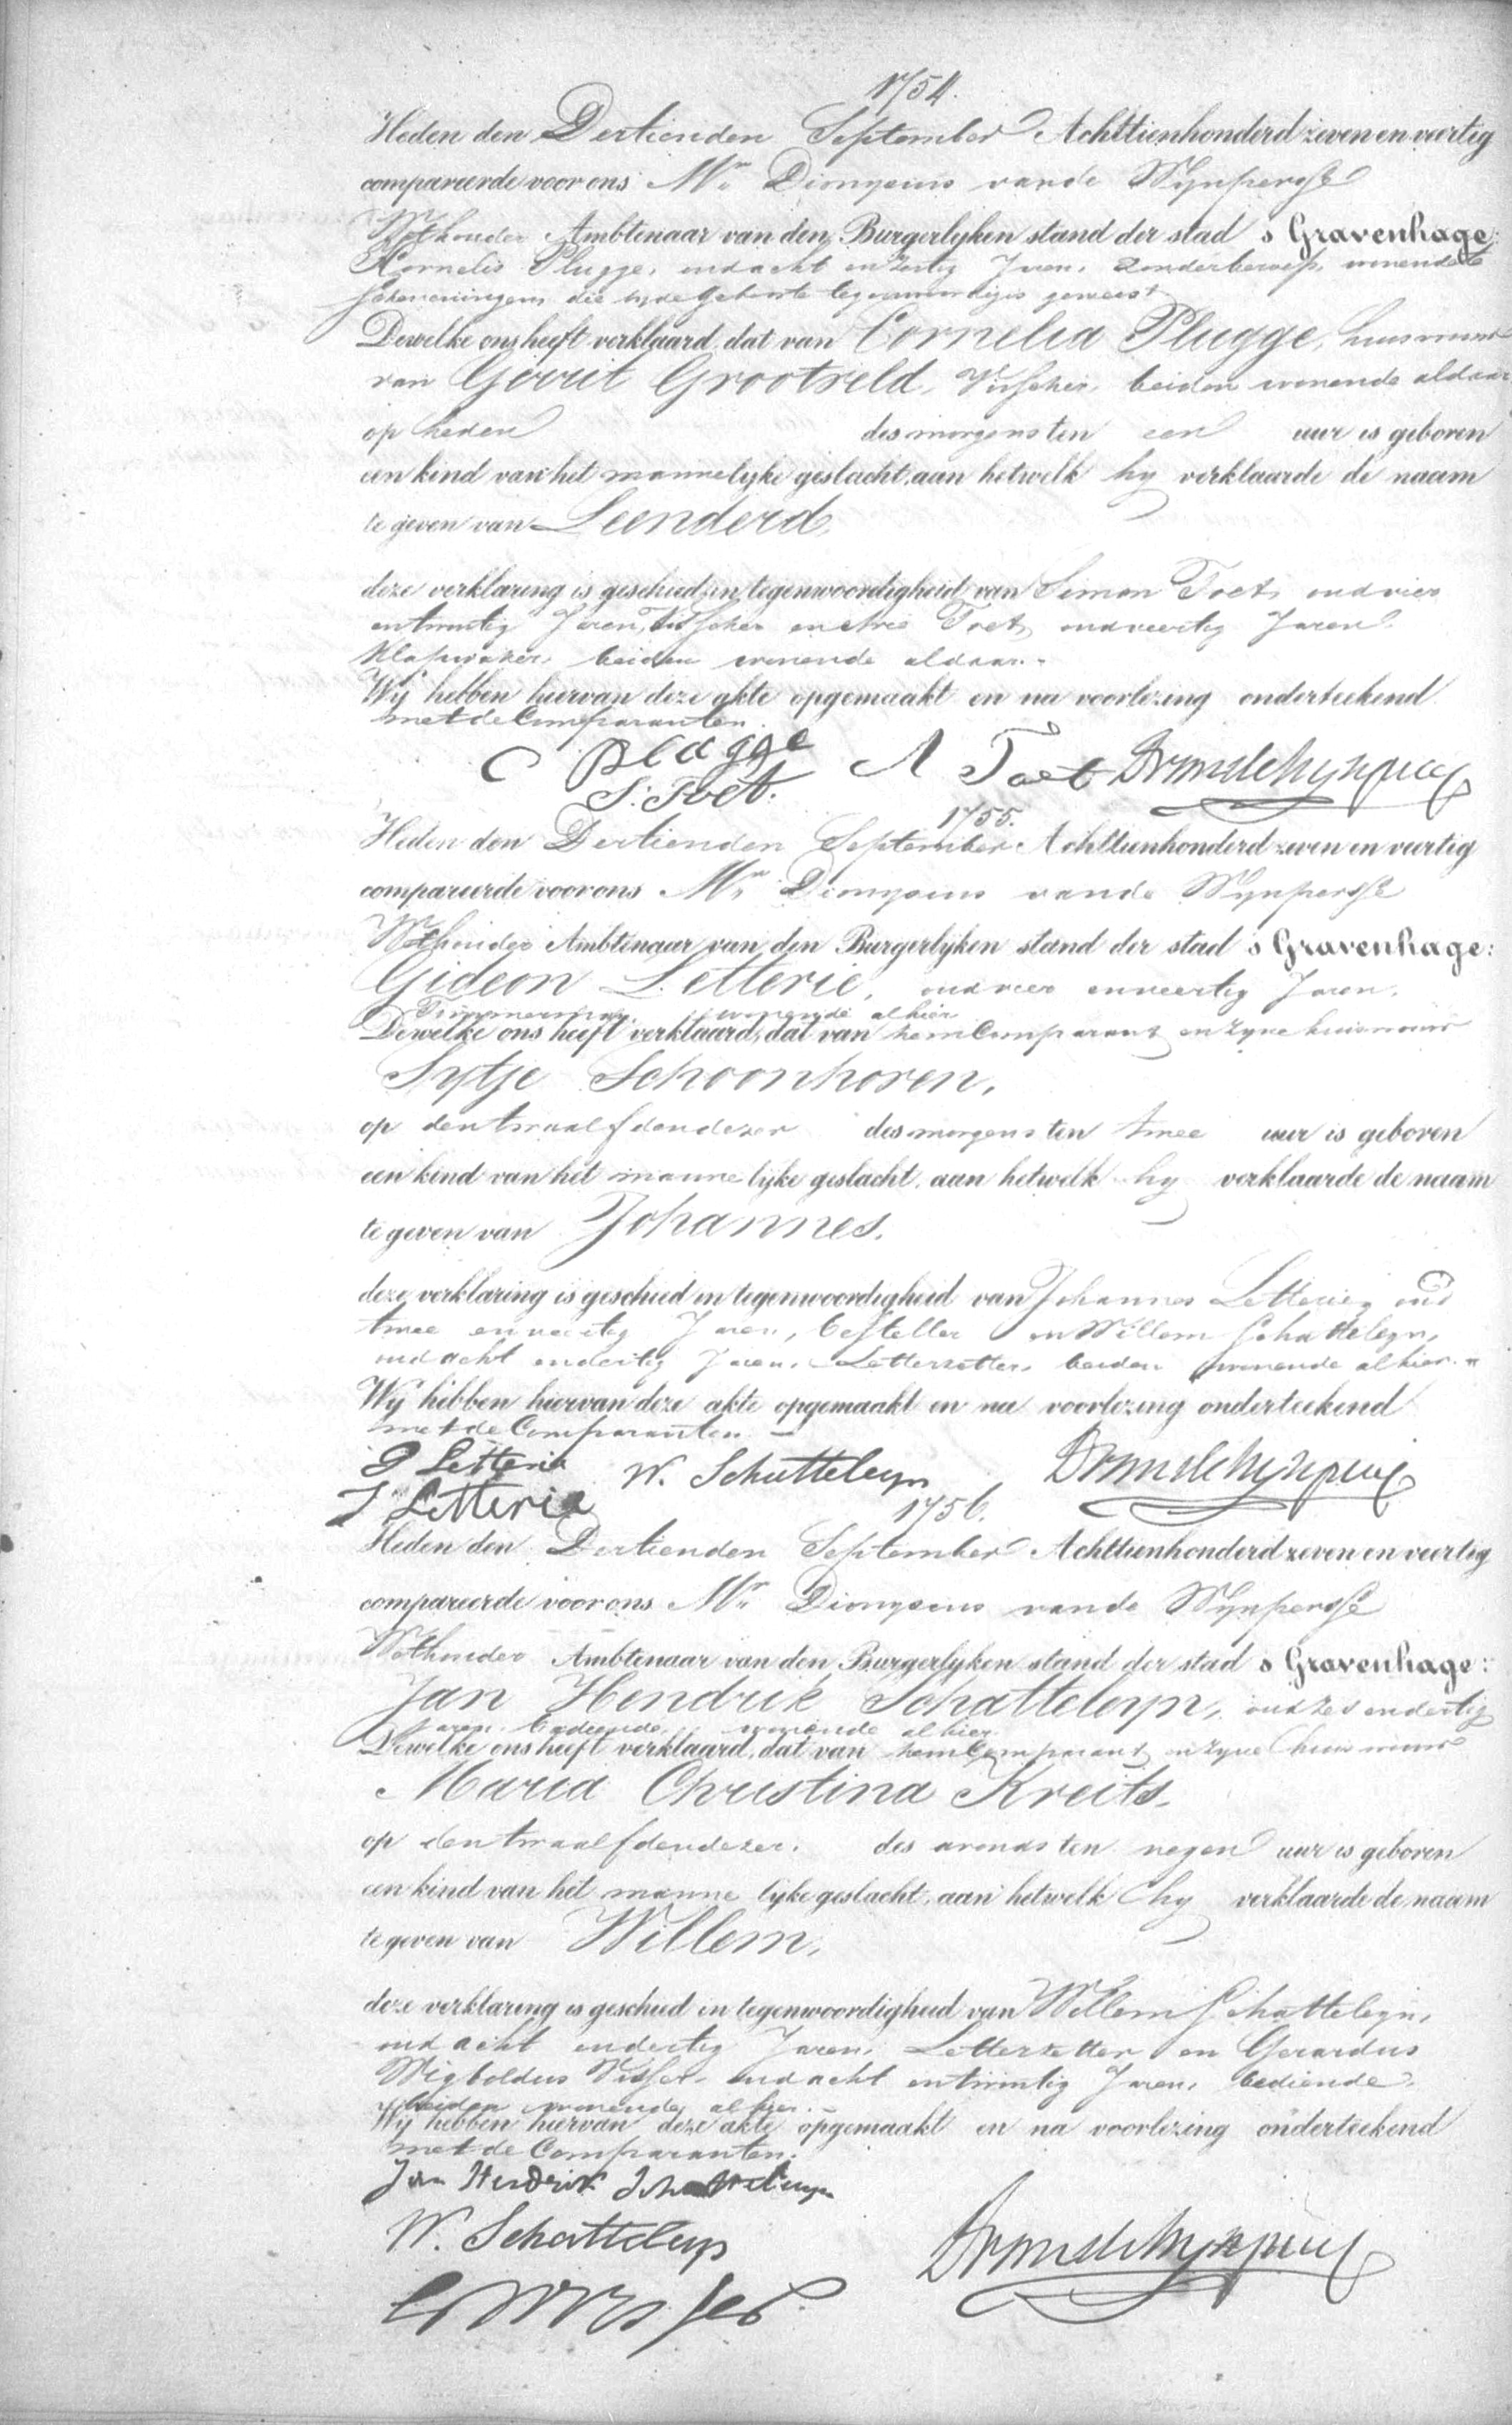 1754.
Heden den Dertienden September Achttienhonderd zeven en veertig
compareerde voor ons Mr. Dionysius vande Wynpersse
Wethouder Ambtenaar van den Burgerlyken stand der stad s Gravenhage:
Kornelis Plugge, oud acht en zestig Jaren, zonder beroep, wonende te
Scheveningen, die by de geboorte tegenwoordig is geweest
Dewelke ons heeft verklaard, dat van Cornelia Plugge, huisvrouw
van Gerrit Grootveld, Visscher, beiden wonende aldaar
op heden des morgens ten een uur is geboren
een kind van het mannelyke geslacht, aan hetwelk hy verklaarde de naam
te geven van Leenderd,
deze verklaring is geschied in tegenwoordigheid van Simon Toet, oud vier
en twintig Jaren, Visscher en Toet, oud veertig Jaren
Klapwaker, beiden wonende aldaar.-
Wij hebben hiervan deze akte opgemaakt en na voorlezing onderteekend
met de Comparanten.
C Plugge A Toet DvandeWynpersse
S. Toet.
1755.
Heden den Dertienden September Achttienhonderd zeven en veertig
compareerde voor ons Mr. Dionysius vande Wynpersse
Wethouder Ambtenaar van den Burgerlyken stand der stad s Gravenhage:
Gideon Letterie, oud vier en veertig Jaren,
Timmerman, wonende alhier
Dewelke ons heeft verklaard, dat van hem Comparant en zyne huisvrouw
Sytje Schoonhoven,
op den twaalfden dezer des morgens ten twee uur is geboren
een kind van het mannelyke geslacht, aan hetwelk hy verklaarde de naam
te geven van Johannes.
deze verklaring is geschied in tegenwoordigheid van Johannes Letterie, oud
twee en veertig Jaren, besteller en Willem Schatteleyn,
oud acht en dertig Jaren, Letterzetter, beiden wonende alhier.-
Wij hebben hiervan deze akte opgemaakt en na voorlezing onderteekend
met de Comparanten. -
G Letterie W. Schatteleyn DvandeWynpersse
J Letterie
1756.
Heden den Dertienden September Achttienhonderd zeven en veertig
compareerde voor ons Mr. Dionysius vande Wynpersse
Wethouder Ambtenaar van den Burgerlyken stand der stad s Gravenhage:
Jan Hendrik Schatteleyn, oud zes en dertig
Jaren, bediende, wonende alhier
Dewelke ons heeft verklaard, dat van hem Comparant en zyne huisvrouw
Maria Christina Kreits,
op den twaalfden dezer, des avonds ten negen uur is geboren
een kind van het mannelyke geslacht, aan hetwelk hy verklaarde de naam
te geven van Willem,
deze verklaring is geschied in tegenwoordigheid van Willem Schatteleyn,
oud acht en dertig Jaren, Letterzetter en Gerardus
Wigboldus Visser, oud acht en twintig Jaren, bediende,
beiden wonende alhier.-
Wij hebben hiervan deze akte opgemaakt en na voorlezing onderteekend
met de Comparanten.
Jan Hendrik Schatteleyn
W. Schatteleyn DvandeWynpersse
G W Visser